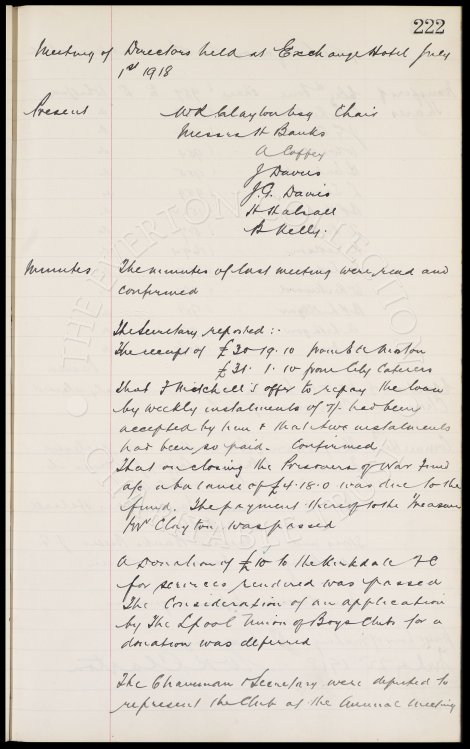 222
Meeting of Directors held at Exchange Hotel July
1st 1918
Present W R Clayton Esq Chair
Messrs H Banks
A Coffey
J Davies
J. G. Davis
H Halsall
B Kelly.
Minutes The minutes of last meeting were read and
confirmed
The Secretary reported :-
The receipt of £20.19.10 from
£31. 1. 10 from City Caterers
That F Mitchell's offer to repay the loan
by weekly instalments of 7/- had been
accepted by him & that two instalments
had been so paid. Confirmed,
That on closing the Prisoners of War Fund
a/c a balance of £4.18.0 was due to the
fund. The payment thereof to the Treasurer
Mr Clayton was passed
A Donation of £10 to The Kirkdale F C
for services rendered was passed
The Consideration of an application
by The L'pool Union of Boys Clubs for a
donation was deferred
The Chairman & Secretary were deputed to
represent the Club at the Annual Meeting
THE EVERTON COLLECTION